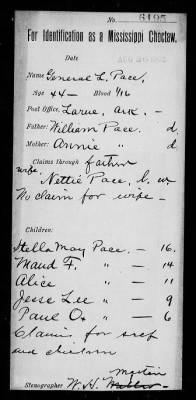 No. 6195
For Identification as a Mississippi Choctaw.
Date
AUG 20 1902
Name General L. Pace,
Age 44— Blood 1/16
Post Office, Larue, Ark. —
Father: William Pace. d.
Mother: Annie " d
Claims through father
wife, Nettie Pace, l. w.
No claim for wife —
Children:
Stella May Pace. — 16.
Maud F. " — 14
Alice " — 11
Jesse Lee " — 9
Paul O. " — 6
Claims for self
and children
Martin
Stenographer W. H.